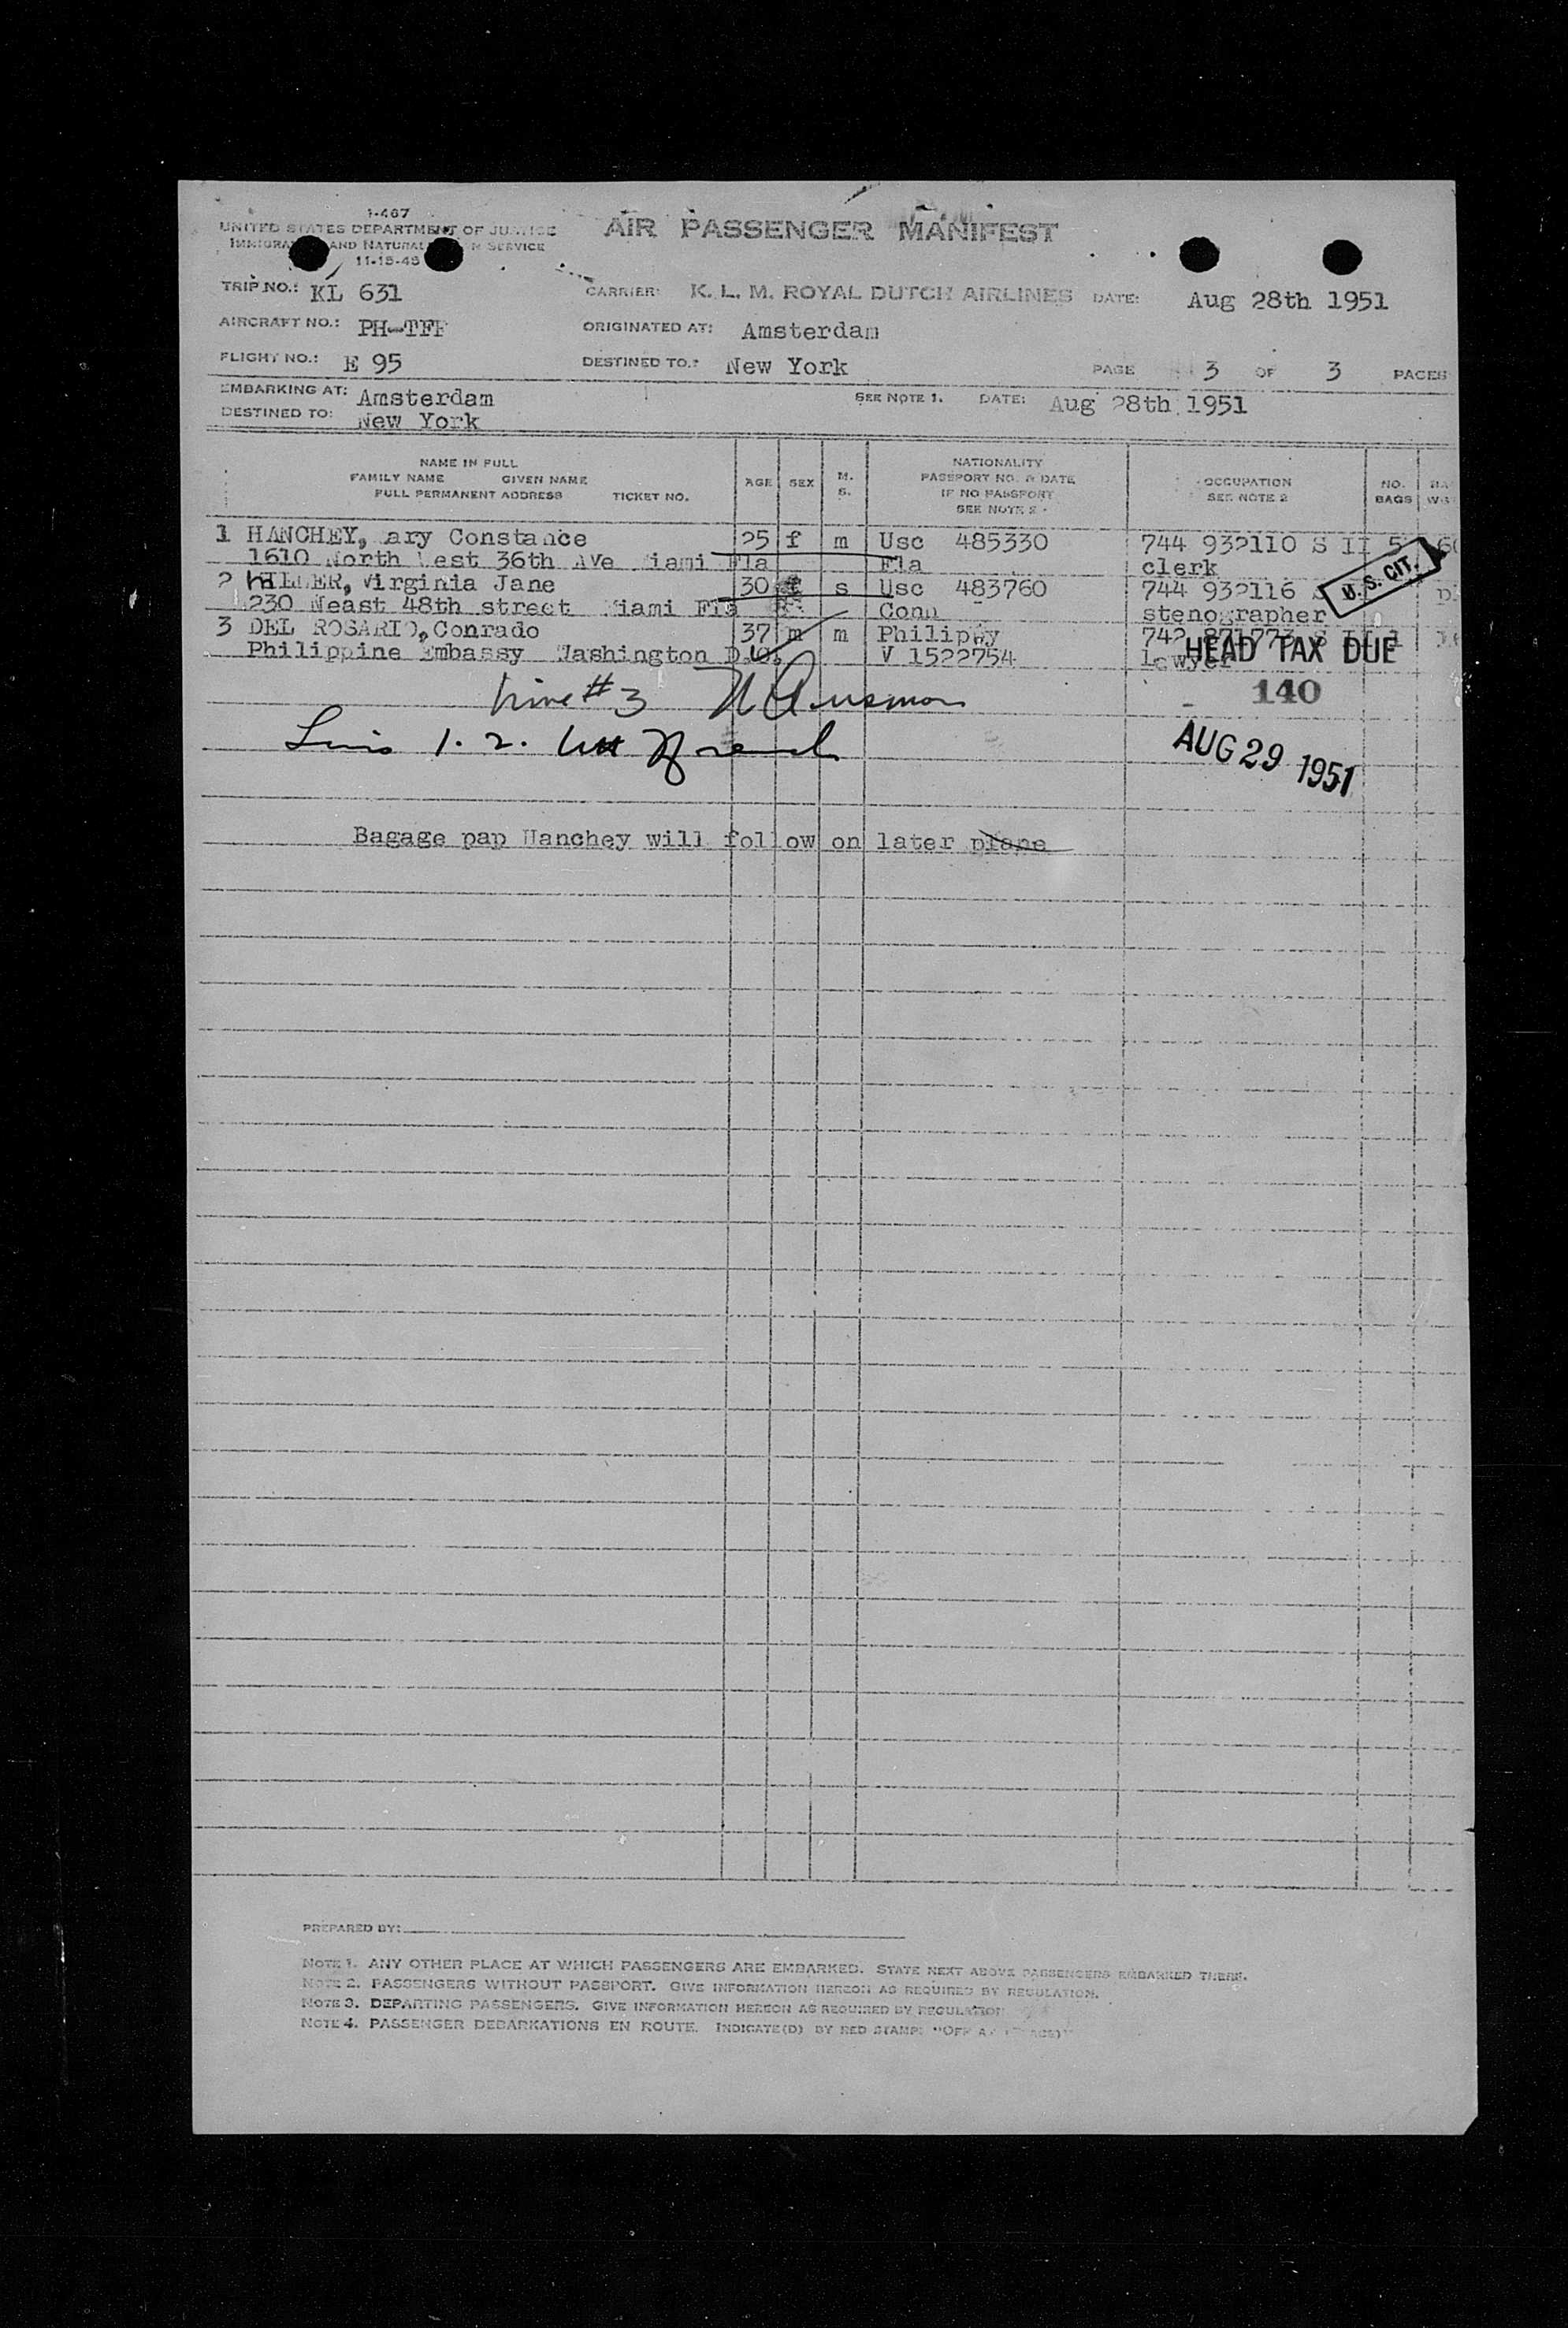 I-467
UNITED STATES DEPARTMENT OF JUSTICE
IMMIGRA AND NATURAL N SERVICE
11-18-48
AIR PASSENGER MANIFEST
TRIP NO.: KL 631 CARRIER: K. L. M. ROYAL DUTCH AIRLINES DATE: Aug 28th 1951
AIRCRAFT NO.: PH-TFF ORIGINATED AT: Amsterdam
FLIGHT NO.: E 95 DESTINED TO: New York PAGE 3 OF 3 PAGES
EMBARKING AT: Amsterdam SEE NOTE 1. DATE: Aug 28th 1951
DESTINED TO: New York
NAME IN FULL
FAMILY NAME GIVEN NAME
FULL PERMANENT ADDRESS TICKET NO.
AGE SEX M. S.
NATIONALITY
PASSPORT NO. & DATE
IF NO PASSPORT
SEE NOTE 2
OCCUPATION
SEE NOTE 2
NO. BAGS
1 HANCHEY, ary Constance 25 f m Usc 485330 744 932110 S II 5
1610 North West 36th Ave iami Fla Fla clerk
2 Virginia Jane 30 f s Usc 483760 744 932116
230 Neast 48th street iami Fla Conn stenographer
U.S. CIT.
3 DEL ROSARIO, Conrado 37 m m Philippy 742 871773 S II 1
Philippine Embassy Washington D.C. V 1522754 Lawyer
HEAD TAX DUE
140
Line #3
1. 2.
AUG 29 1951
Bagage pap Hanchey will follow on later plane
PREPARED BY:
NOTE 1. ANY OTHER PLACE AT WHICH PASSENGERS ARE EMBARKED. STATE NEXT ABOVE PASSENGERS EMBARKED THERE.
NOTE 2. PASSENGERS WITHOUT PASSPORT. GIVE INFORMATION HEREON AS REQUIRED BY REGULATION.
NOTE 3. DEPARTING PASSENGERS. GIVE INFORMATION HEREON AS REQUIRED BY REGULATION
NOTE 4. PASSENGER DEBARKATIONS EN ROUTE. INDICATE(D) BY RED STAMP: "OFF AT